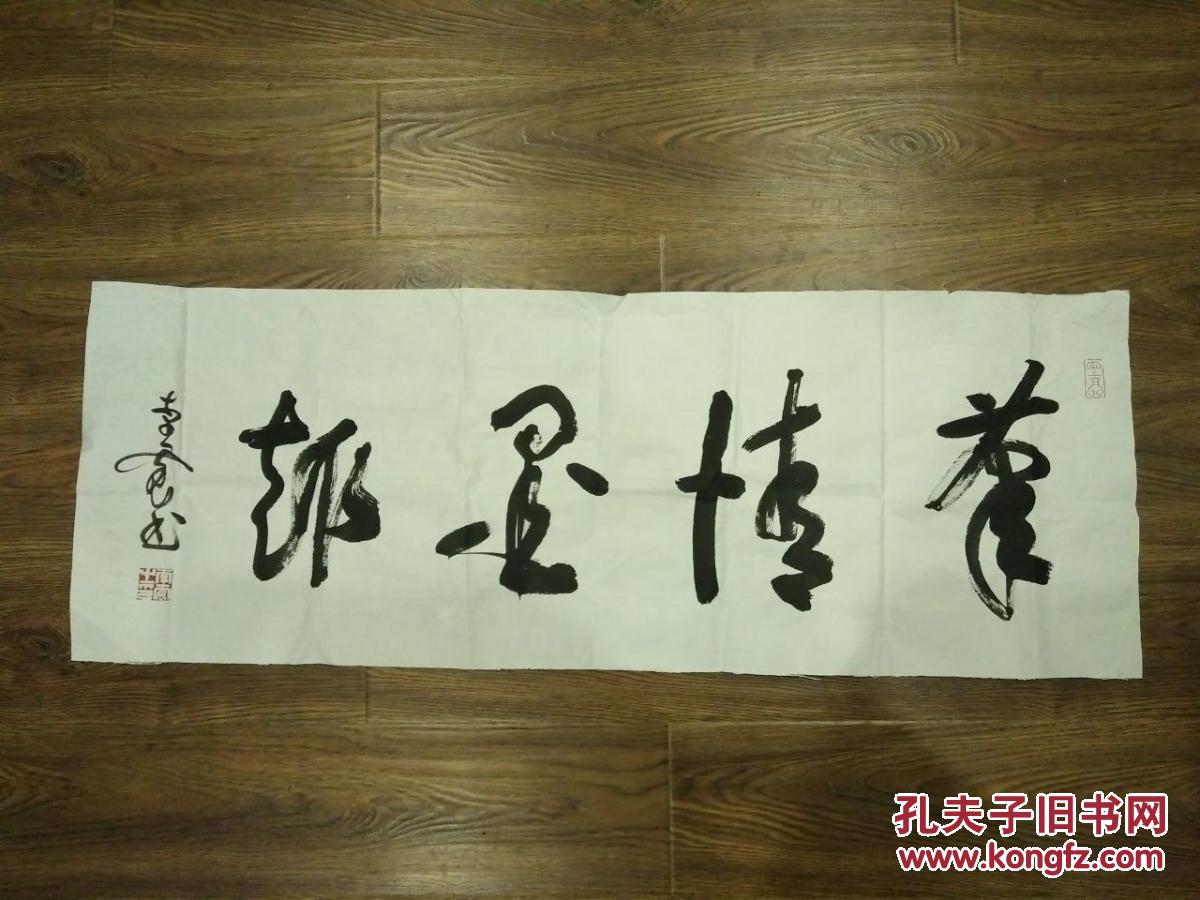 筆情墨趣
書
孔夫子旧书网
www.kongfz.com